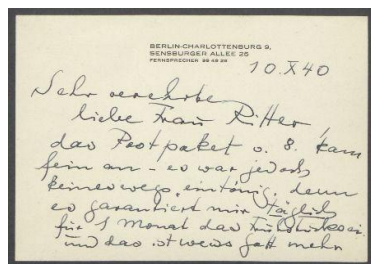 BERLIN-CHARLOTTENBURG 9,
SENSBURGER ALLEE 26
FERNSPRECHER 99 49 26
10.X40
Sehr verehrte
liebe Frau Ritter,
das Postpaket v. 8. kam
fein an – es war jedoch
keineswegs eintönig, denn
es garantiert mir täglich
für 1 Monat das Frühstücksei
und das ist weiss Gott mehr